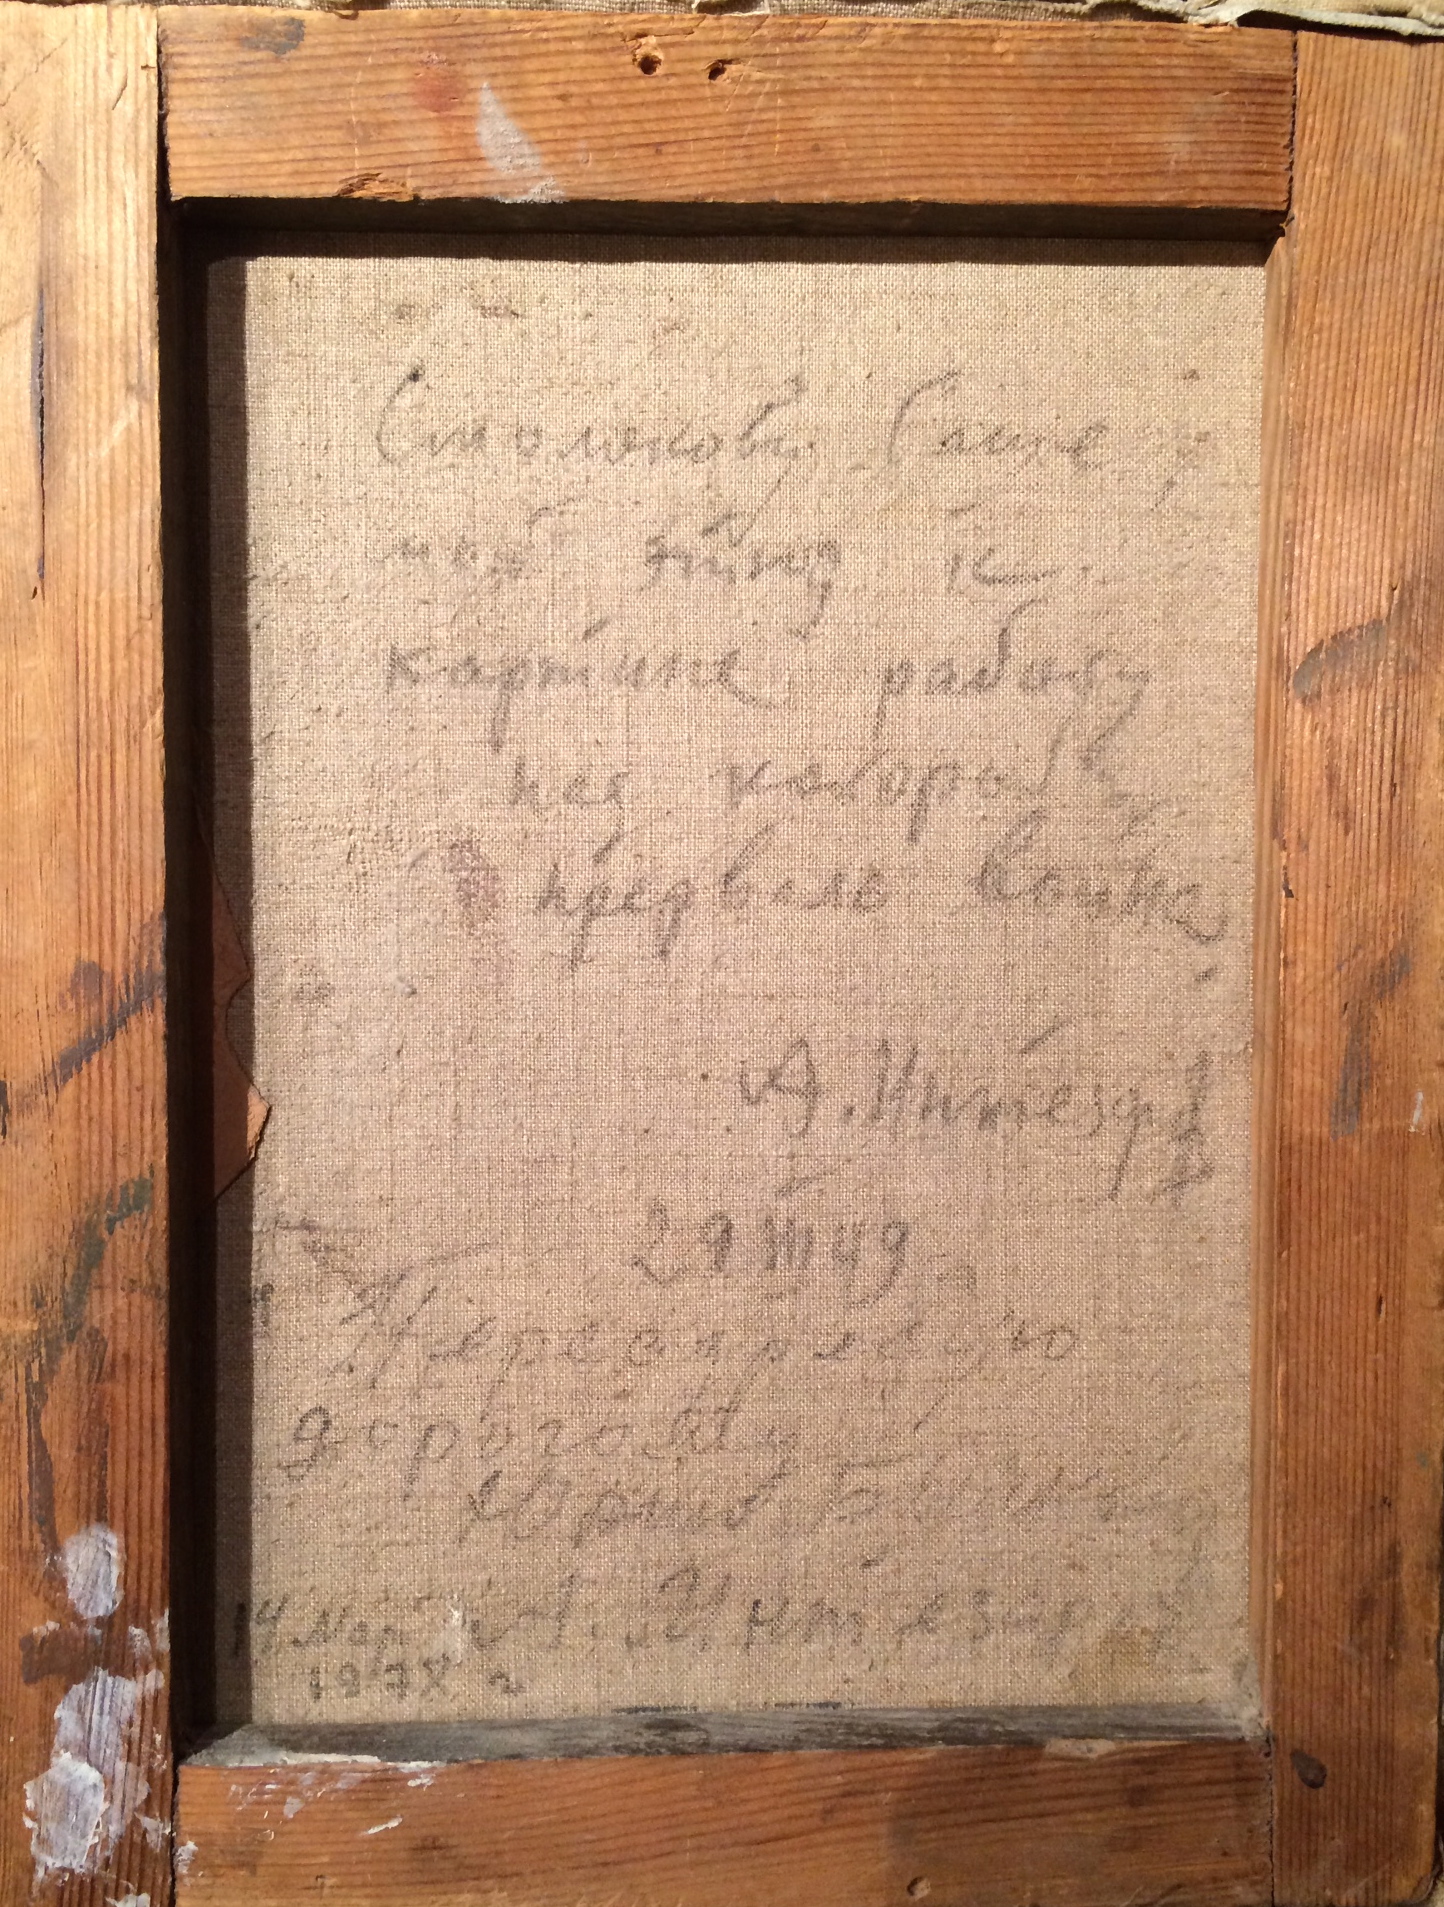 Смолякову Саше,
мой этюд к
картине работу
над которой
прервала война.
А. Интезар
29 III 49
Переадресую
дорогому
Юрию
14 мар А. Интезар
197 г